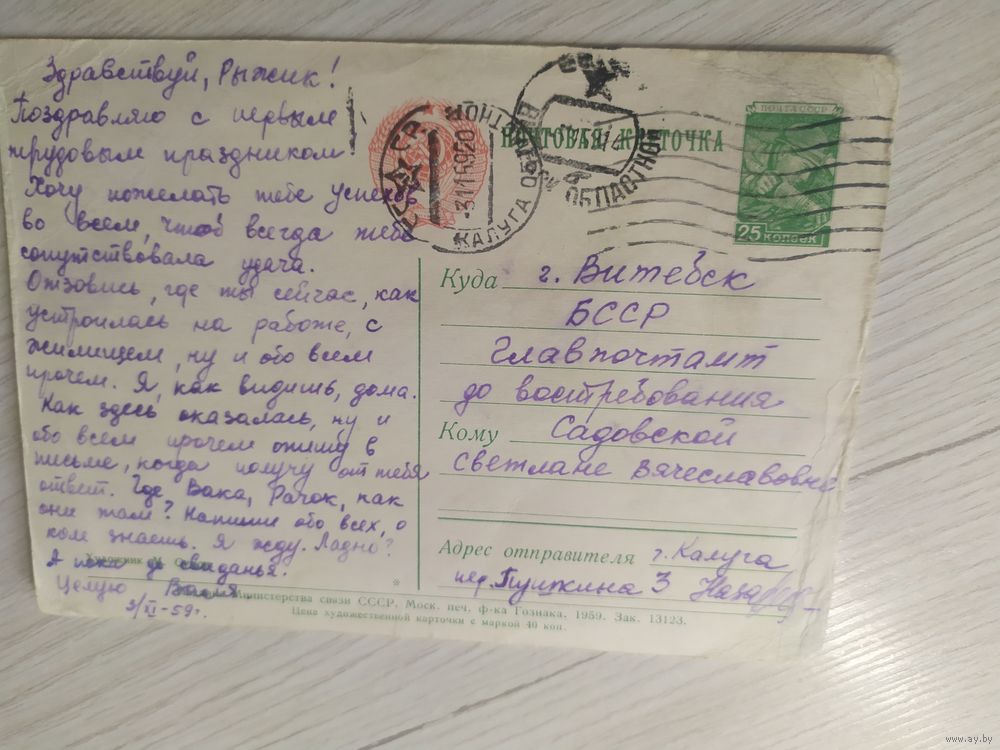 Здравствуй, Рыжик!
Поздравляю с первым
трудовым праздником!
Хочу пожелать тебе успехов
во всем, чтоб всегда тебе
сопутствовала удача.
Отзовись, где ты сейчас, как
устроилась на работе, с
жилищем, ну и обо всем
прочем. Я, как видишь, дома.
Как здесь оказалась, ну и
обо всем прочем опишу в
письме, когда получу от тебя
ответ. Где Вака, Рачок, как
они там? Напиши обо всех, о
ком знаешь. Я жду. Ладно?
Я пока до свиданья.
Целую
3/XI-59г.
Художник М.
ПОЧТОВАЯ КАРТОЧКА
ПОЧТА СССР
25 КОПЕЕК
КАЛУГА
ОБЛАСТНОЙ
Куда г. Витебск
БССР
Главпочтамт
до востребования
Кому Садовской
Светлане Вячеславовне
Адрес отправителя г. Калуга
пер. Пушкина 3
Министерства связи СССР. Моск. печ. ф-ка Гознака. 1959. Зак. 13123.
Цена художественной карточки с маркой 40 коп.
www.ay.by